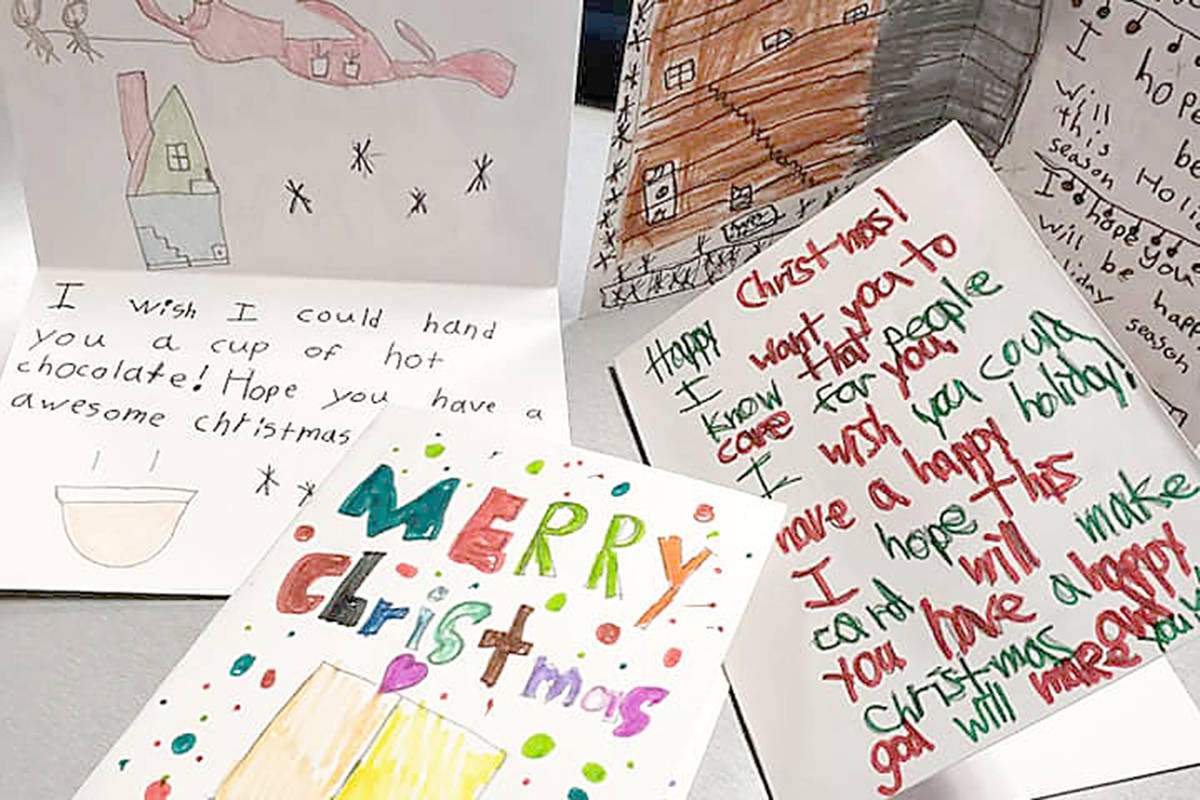 I wish I could hand
you a cup of hot
chocolate! Hope you have a
awesome christmas
MERRY
Christmas
Happy Christmas!
I want you to
know that people
care for you,
I wish you could
have a happy holiday!
I hope this
card will make
you have a happy
christmas
god will make
I hope
will be
this
season Holi
I hope you
will be happ
liday
season